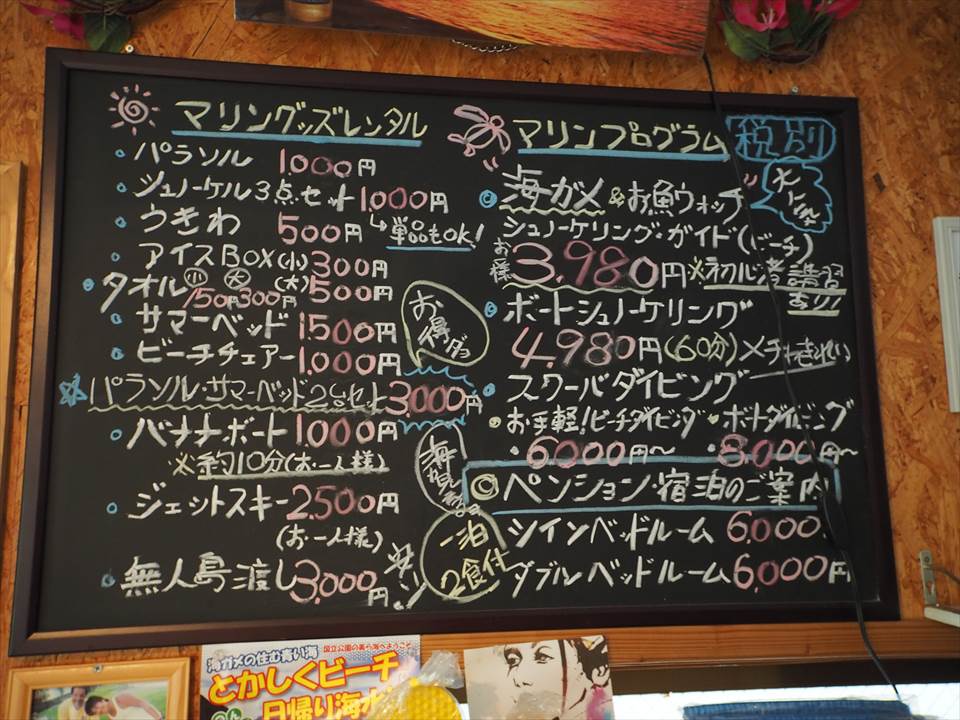 マリングッズレンタル
パラソル 1,000円
シュノーケル3点セット 1,000円
うきわ 500円 単品もOK!
アイスBOX(小) 300円
(大) 500円
タオル 小 大
150円 300円
サマーベッド 1500円
ビーチチェアー 1,000円
お得ダヨ
パラソル・サマーベッド2台セット 3000円
バナナボート 1,000円
※約10分(お一人様)
ジェットスキー 2,500円
(お一人様)
無人島渡し 3,000円
マリンプログラム 税別
海ガメ&お魚ウォッチ
シュノーケリング・ガイド(ビーチ)
お一人様 3,980円 ※初心者講習あり!
ボートシュノーケリング
4,980円(60分) メチャきれい
スクーバダイビング
お手軽!ビーチダイビング ・ボートダイビング
・6000円〜 ・8,000円〜
◎ペンション・宿泊のご案内
一泊2食付
ツインベッドルーム 6,000
ダブルベッドルーム 6,000円
国立公園の美ら海へようこそ
海ガメの住む青い海
とかしくビーチ
日帰り海水